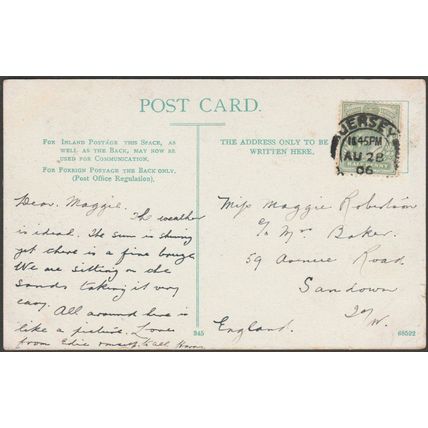 POST CARD.
FOR INLAND POSTAGE THIS SPACE, AS
WELL AS THE BACK, MAY NOW BE
USED FOR COMMUNICATION.
FOR FOREIGN POSTAGE THE BACK ONLY.
(Post Office Regulation).
THE ADDRESS ONLY TO BE
WRITTEN HERE.
JERSEY
11.45PM
AU 28
06
Dear Maggie.
The weather
is ideal. The sun is shining
yet there is a fine
We are sitting on the
sands taking it very
easy.
All around here is
like a picture. Love
from Edie to all
Miss Maggie Robertson
c/o Mrs Baker.
59 Avenue Road.
Sandown
I of W.
England.
345
68592